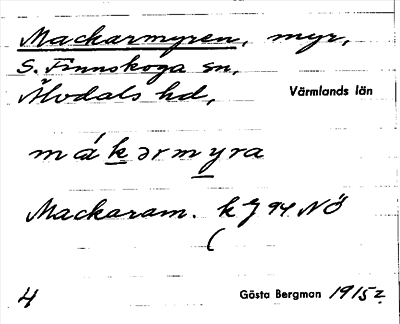 Mackarmyren, myr,
S. Finnskoga sn,
Älvdals hd, Värmlands län
mákərmyra
Mackaram. k 94 NÖ
4 Gösta Bergman 1915